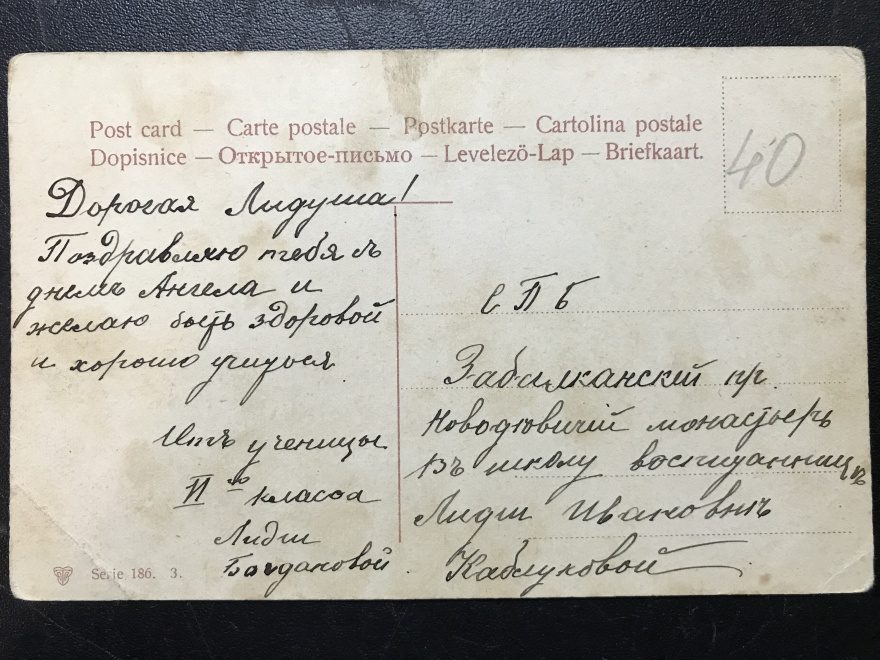 Post card — Carte postale — Postkarte — Cartolina postale
Dopisnice — Открытое-письмо — Levelezö-Lap — Briefkaart.
40
Дорогая Лидуша!
Поздравляю тебя съ
днемъ Ангела и
желаю быть здоровой
и хорошо учиться
Отъ ученицы
VI го класса
Лидіи
Богдановой
С П Б
Забалканскій пр.
Новодѣвичій монастырь
Въ школу воспитанницѣ
Лидіи Ивановнѣ
Каблуковой
Serie 186. 3.